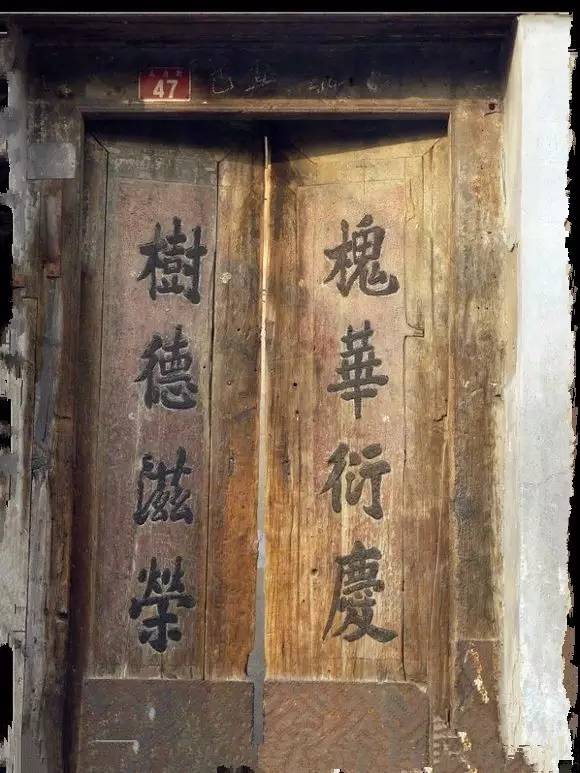 47
槐華衍慶
樹德滋榮